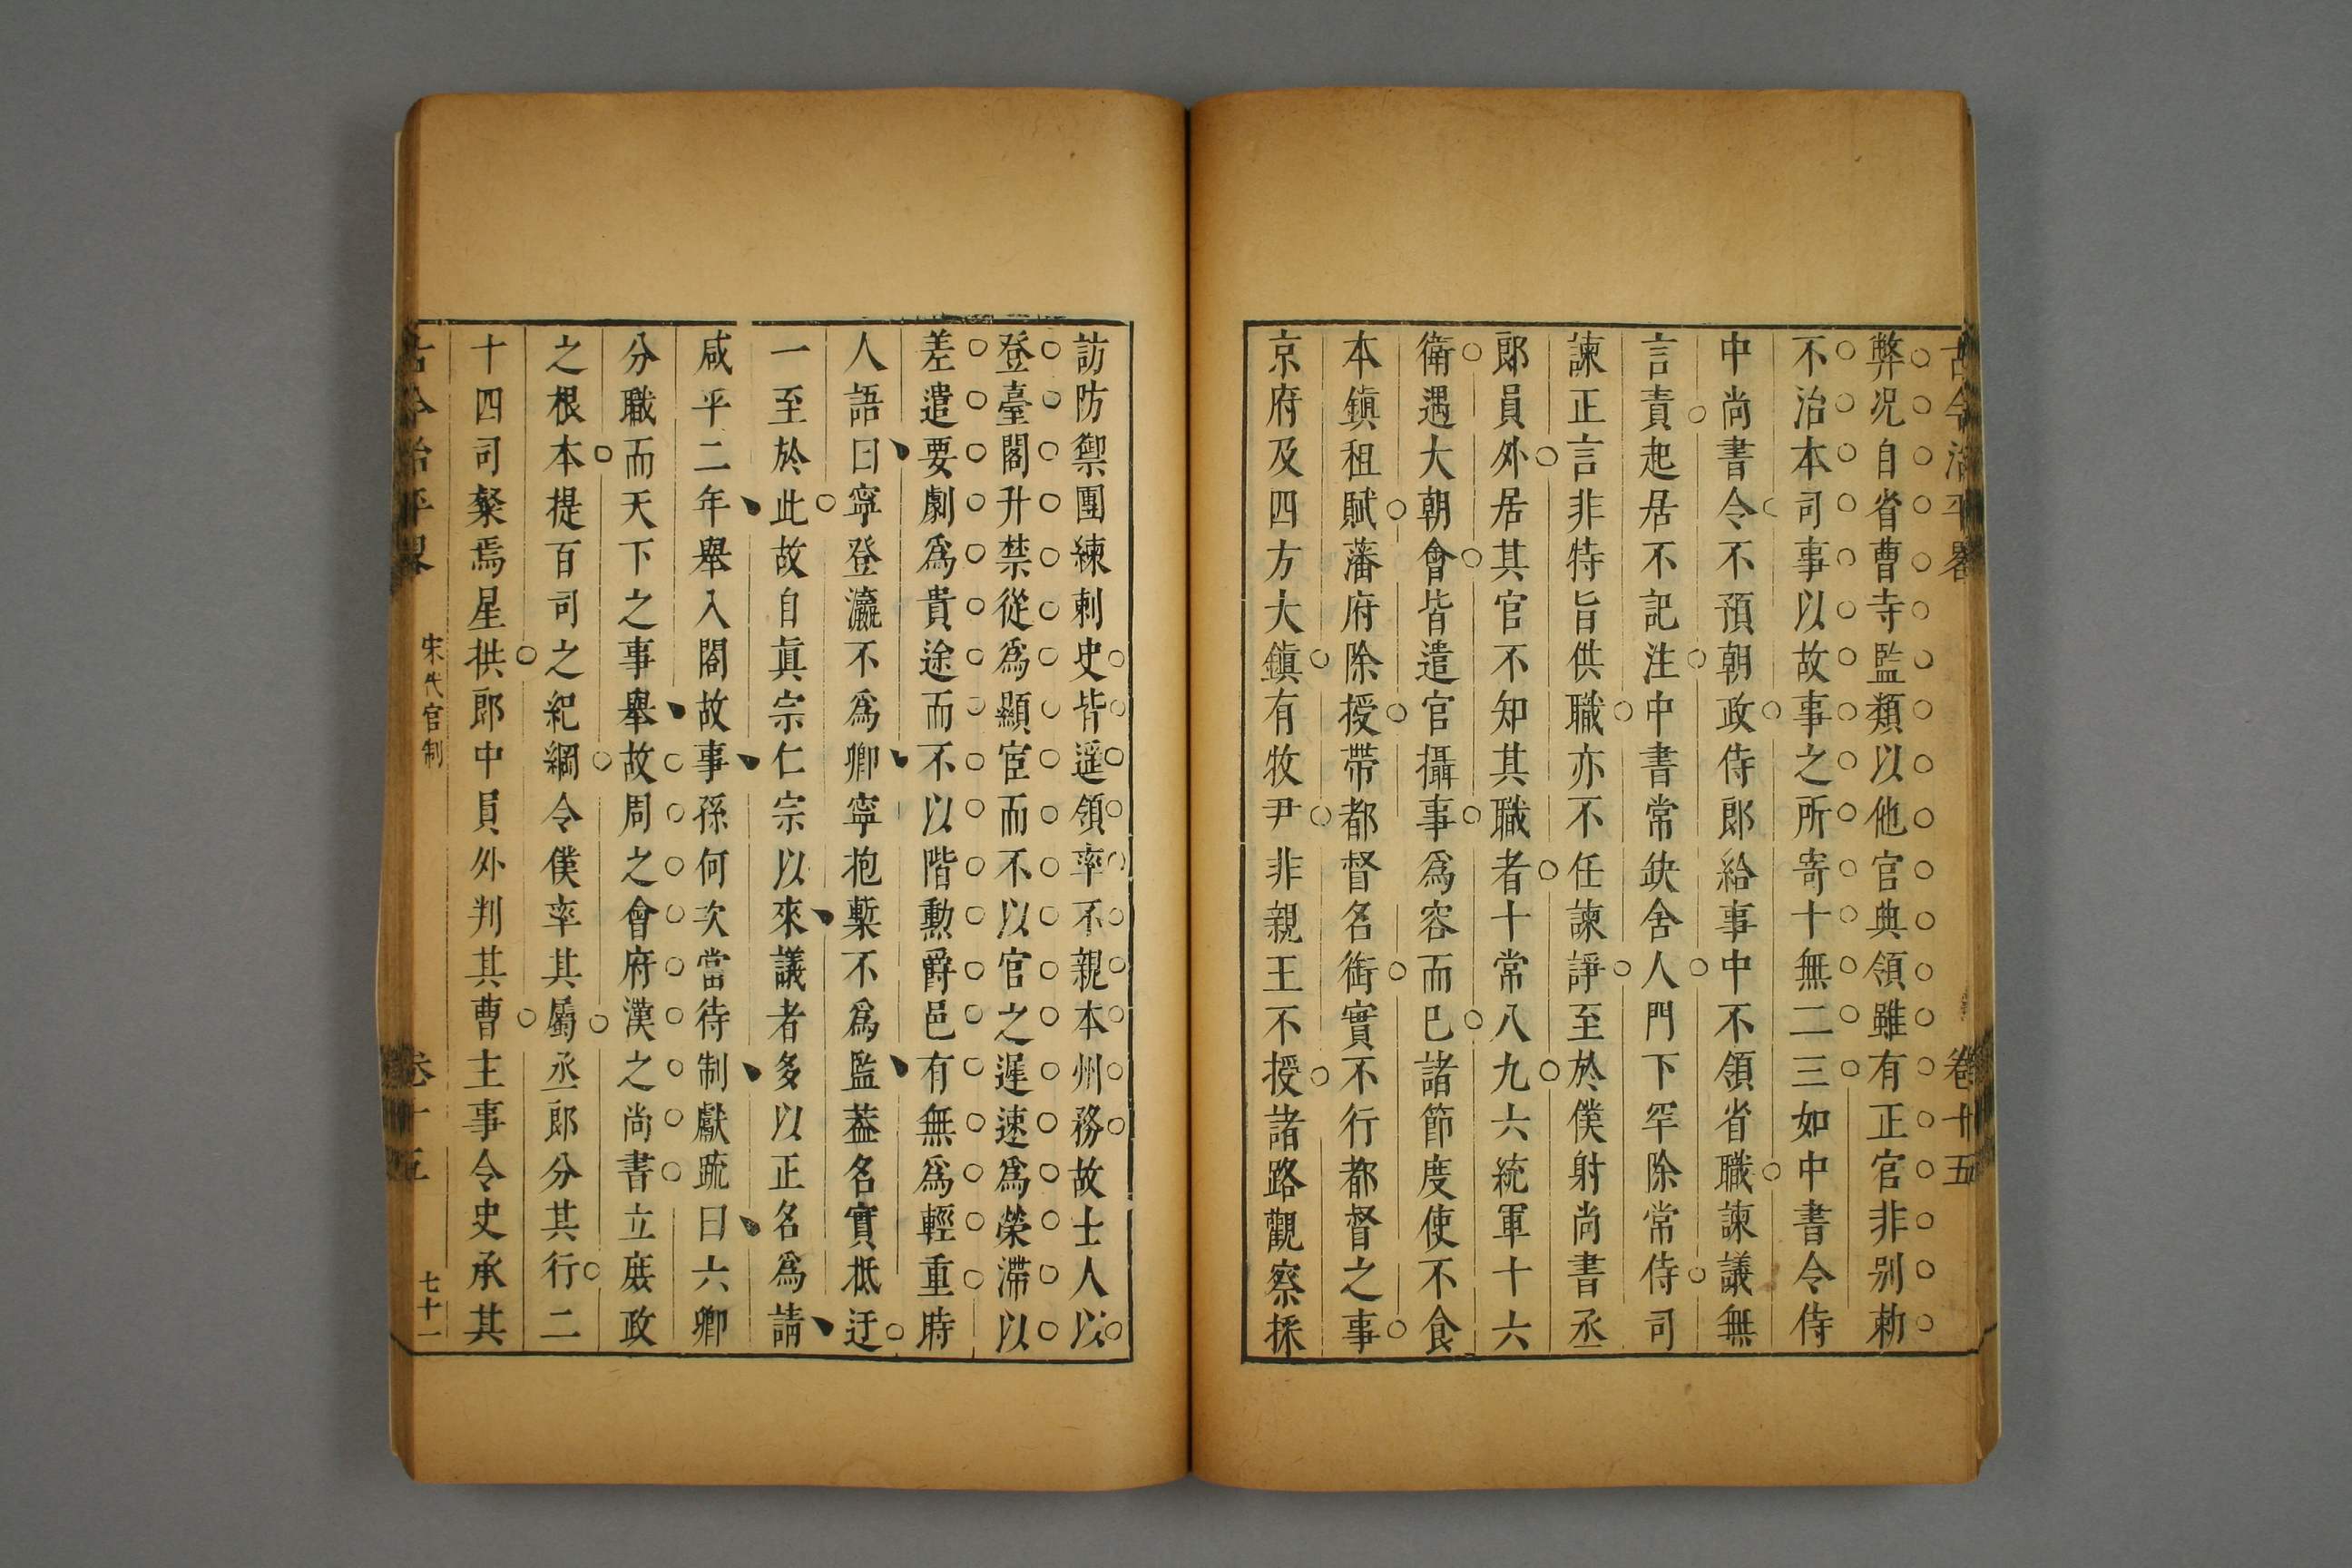 古今治平畧 卷十五
弊况自省曹寺監類以他官典領雖有正官非别勅
不治本司事以故事之所寄十無二三如中書令侍
中尚書令不預朝政侍郎給事中不領省職諫議無
言責起居不記注中書常缺舍人門下罕除常侍司
諫正言非特旨供職亦不任諫諍至於僕射尚書丞
郎員外居其官不知其職者十常八九六統軍十六
衛遇大朝會皆遣官攝事爲容而已諸節度使不食
本鎮租賦藩府除授帶都督名銜實不行都督之事
京府及四方大鎮有牧尹非親王不授諸路觀察採
訪防禦團練刺史皆遥領率不親本州務故士人以
登臺閣升禁從爲顯宦而不以官之遲速爲榮滯以
差遣要劇爲貴途而不以階勲爵邑有無爲輕重時
人語曰寧登瀛不爲卿寧抱槧不爲監葢名實柢迂
一至於此故自眞宗仁宗以來議者多以正名爲請
咸平二年舉入閤故事孫何次當待制獻疏曰六卿
分職而天下之事舉故周之會府漢之尚書立庶政
之根本提百司之紀綱令僕率其屬丞郎分其行二
十四司粲焉星拱郎中員外判其曹主事令史承其
古今治平畧 宋代官制 卷十五 七十一